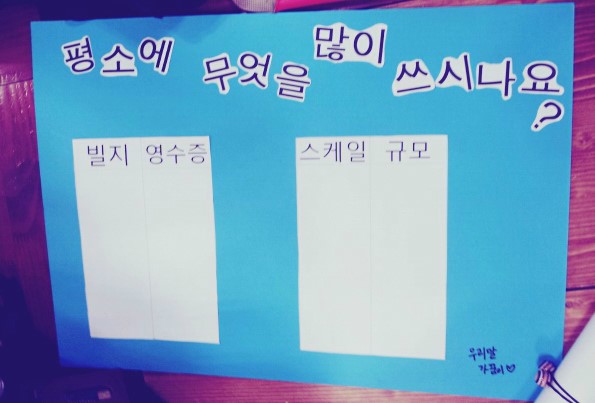 평소에 무엇을 많이 쓰시나요?
빌지 영수증
스케일 규모
우리말
가꿈이♡